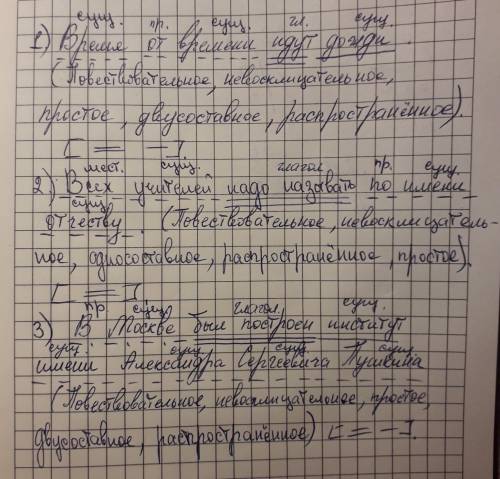 сущ. пр. сущ. гл. сущ.
1) Время от времени идут дожди.
(Повествовательное, невосклицательное,
простое, двусоставное, распространённое).
[ = – ]
мест. сущ. глагол пр. сущ.
2) Всех учителей надо называть по имени
сущ.
отчеству. (Повествовательное, невосклицатель-
ное, односоставное, распространённое, простое).
[ = ]
пр. сущ. глагол. сущ.
3) В Москве был построен институт
сущ. сущ. сущ. сущ.
имени Александра Сергеевича Пушкина
(Повествовательное, невосклицательное, простое,
двусоставное, распространённое) [ = – ].